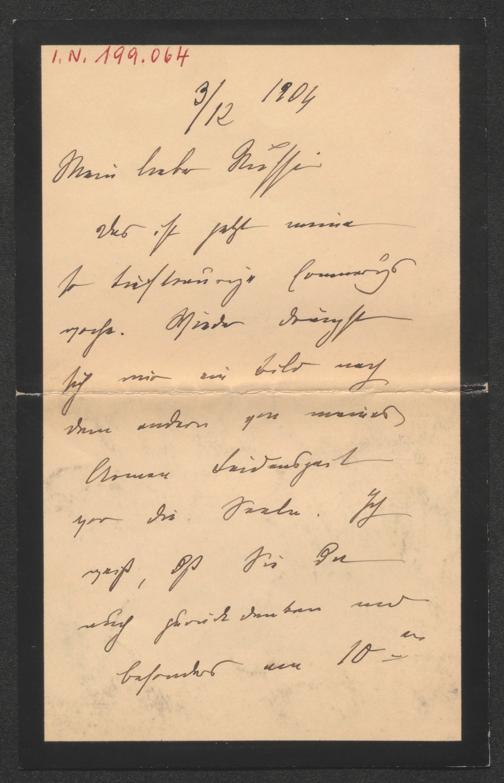 I.N. 199.064
3/12 1904
Mein lieber
Das ist jetzt meine
so tieftraurige
woche. Wieder drängt
sich mir ein Bild nach
dem andern von meines
Armen Leidenszeit
vor die Seele. Ich
weiß, daß Sie da
auch zurückdenken und
besonders am 10